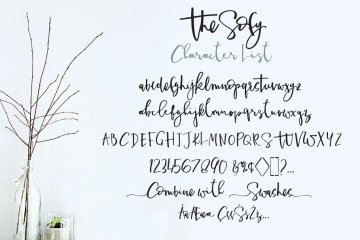 the Sofy
Character List
abcdefghijklmnopqrstuvwxyz
abcdefghijklmnopqrstuvwxyz
ABCDEFGHIJKLMNOPQRSTUVWXYZ
1234567890
Combine with Swashes